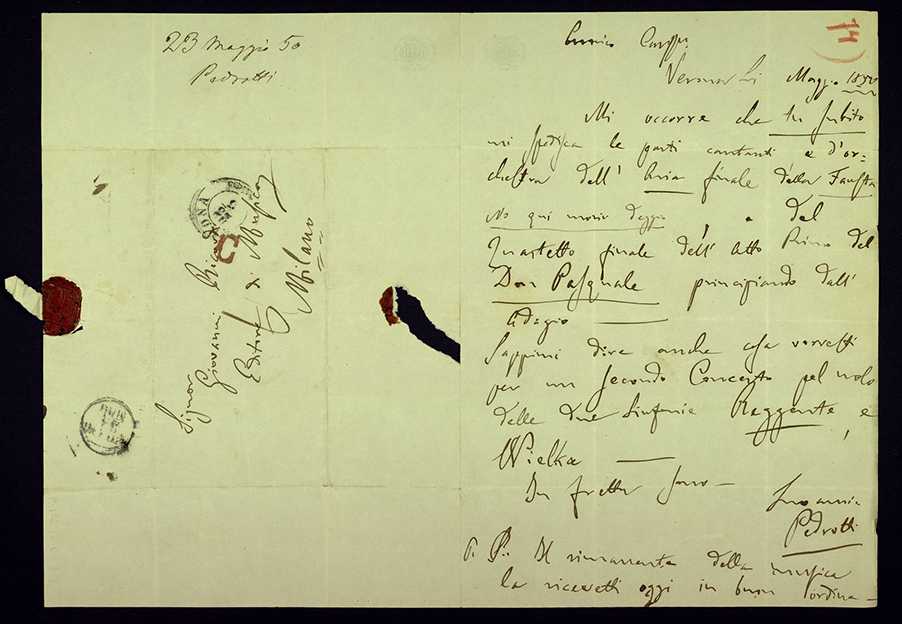 23 Maggio 50
Pedrotti
Signor
Giovanni Ricordi
Editore di Musica
Milano
VERONA
14
Verona li Maggio 1850
Mi occorre che tu subito
mi spedisca le parti cantanti e d'or=
chestra dell' Aria finale della Fausta
No qui morir deggio e del
Quartetto finale dell' Atto Primo del
Don Pasquale principiando dall'
Adagio
Sappimi dire anche cosa vorresti
per un secondo Concerto pel nolo
delle due Sinfonie Reggente e
Wielka
In fretta sono
Pedrotti
P. S. Il rimanente della musica
la ricevetti oggi in buon ordine